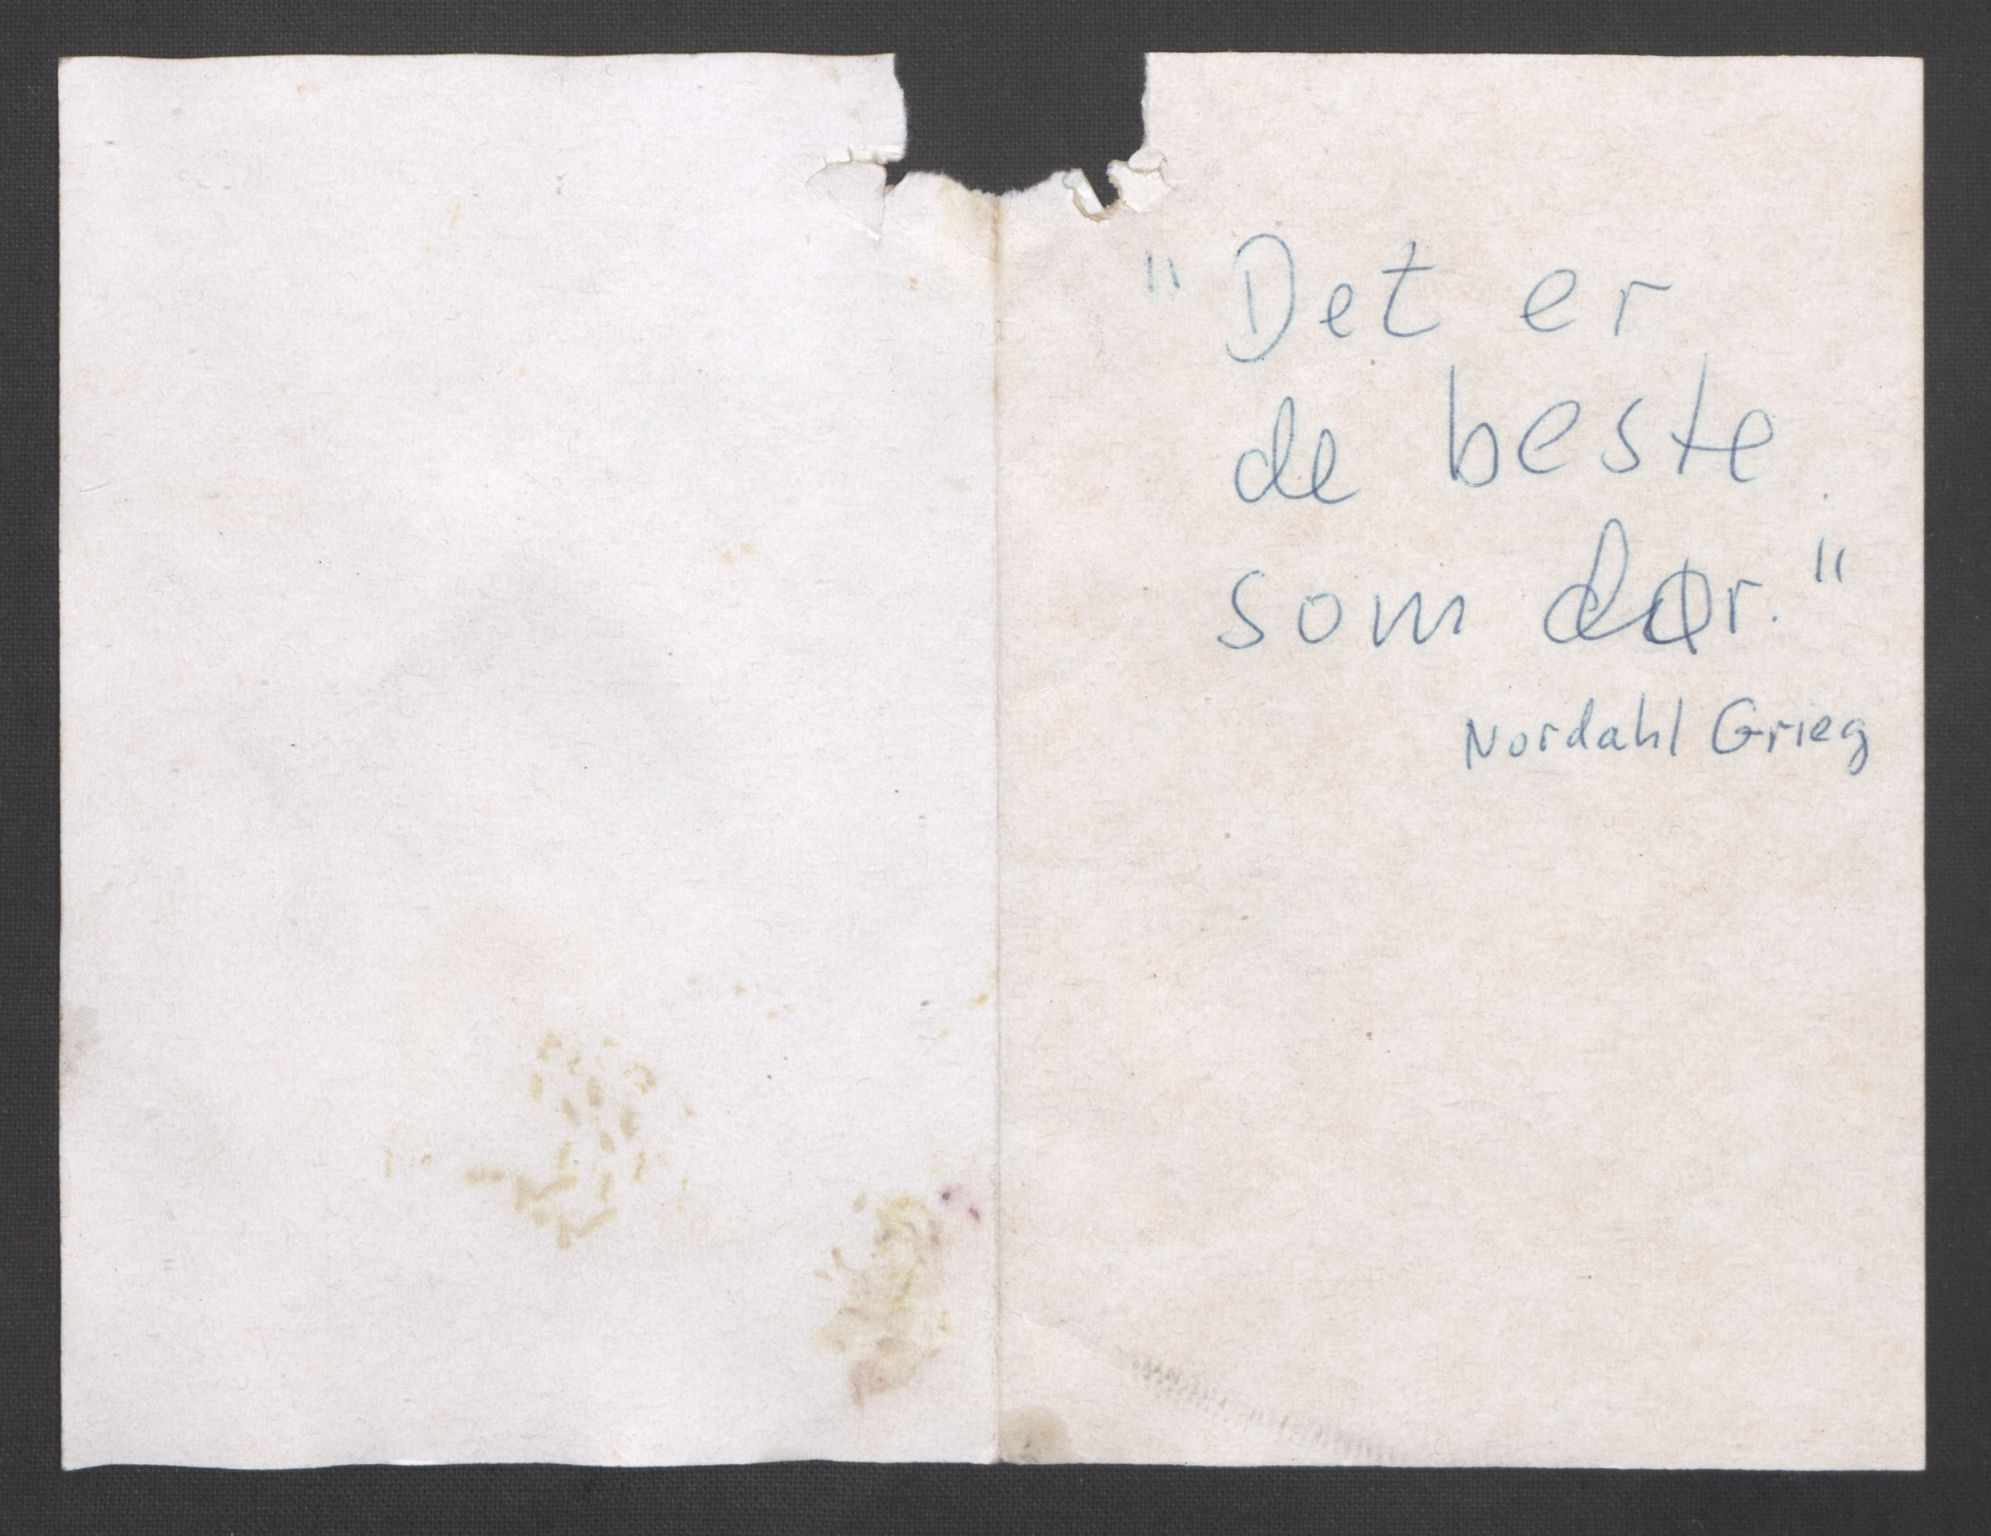 "Det er
de beste
som dør."
Nordahl Grieg